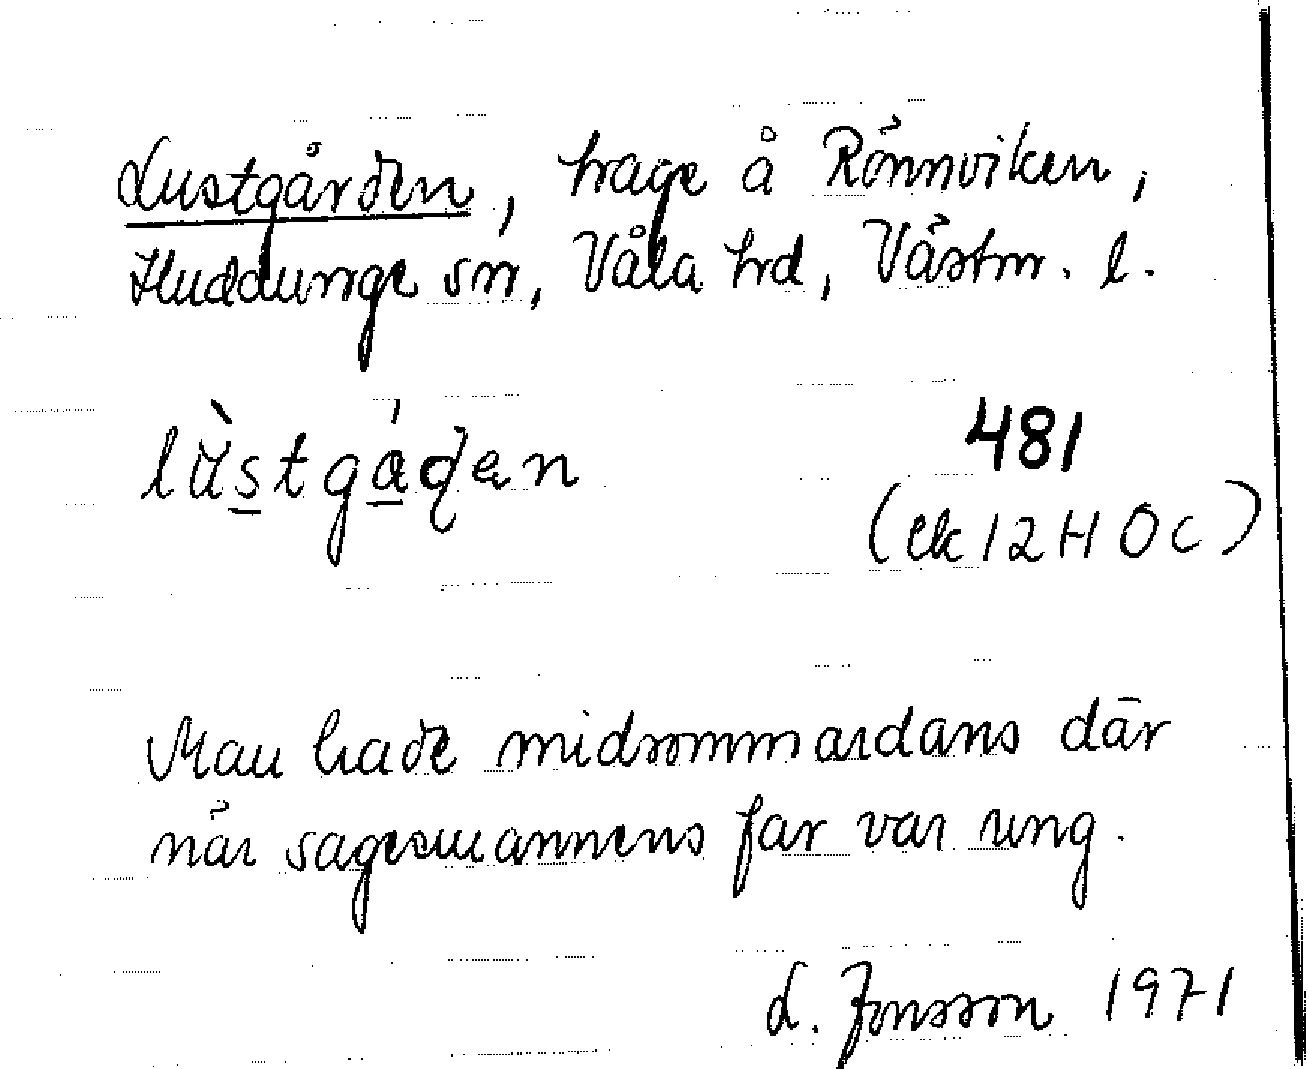 Lustgården, hage å Rönnviken,
Huddunge sn, Våla hd, Västm. l.
lùstgá̱ḍən
481
(ek 12H 0c)
Man hade midsommardans där
när sagesmannens far var ung.
L. Jonsson 1971